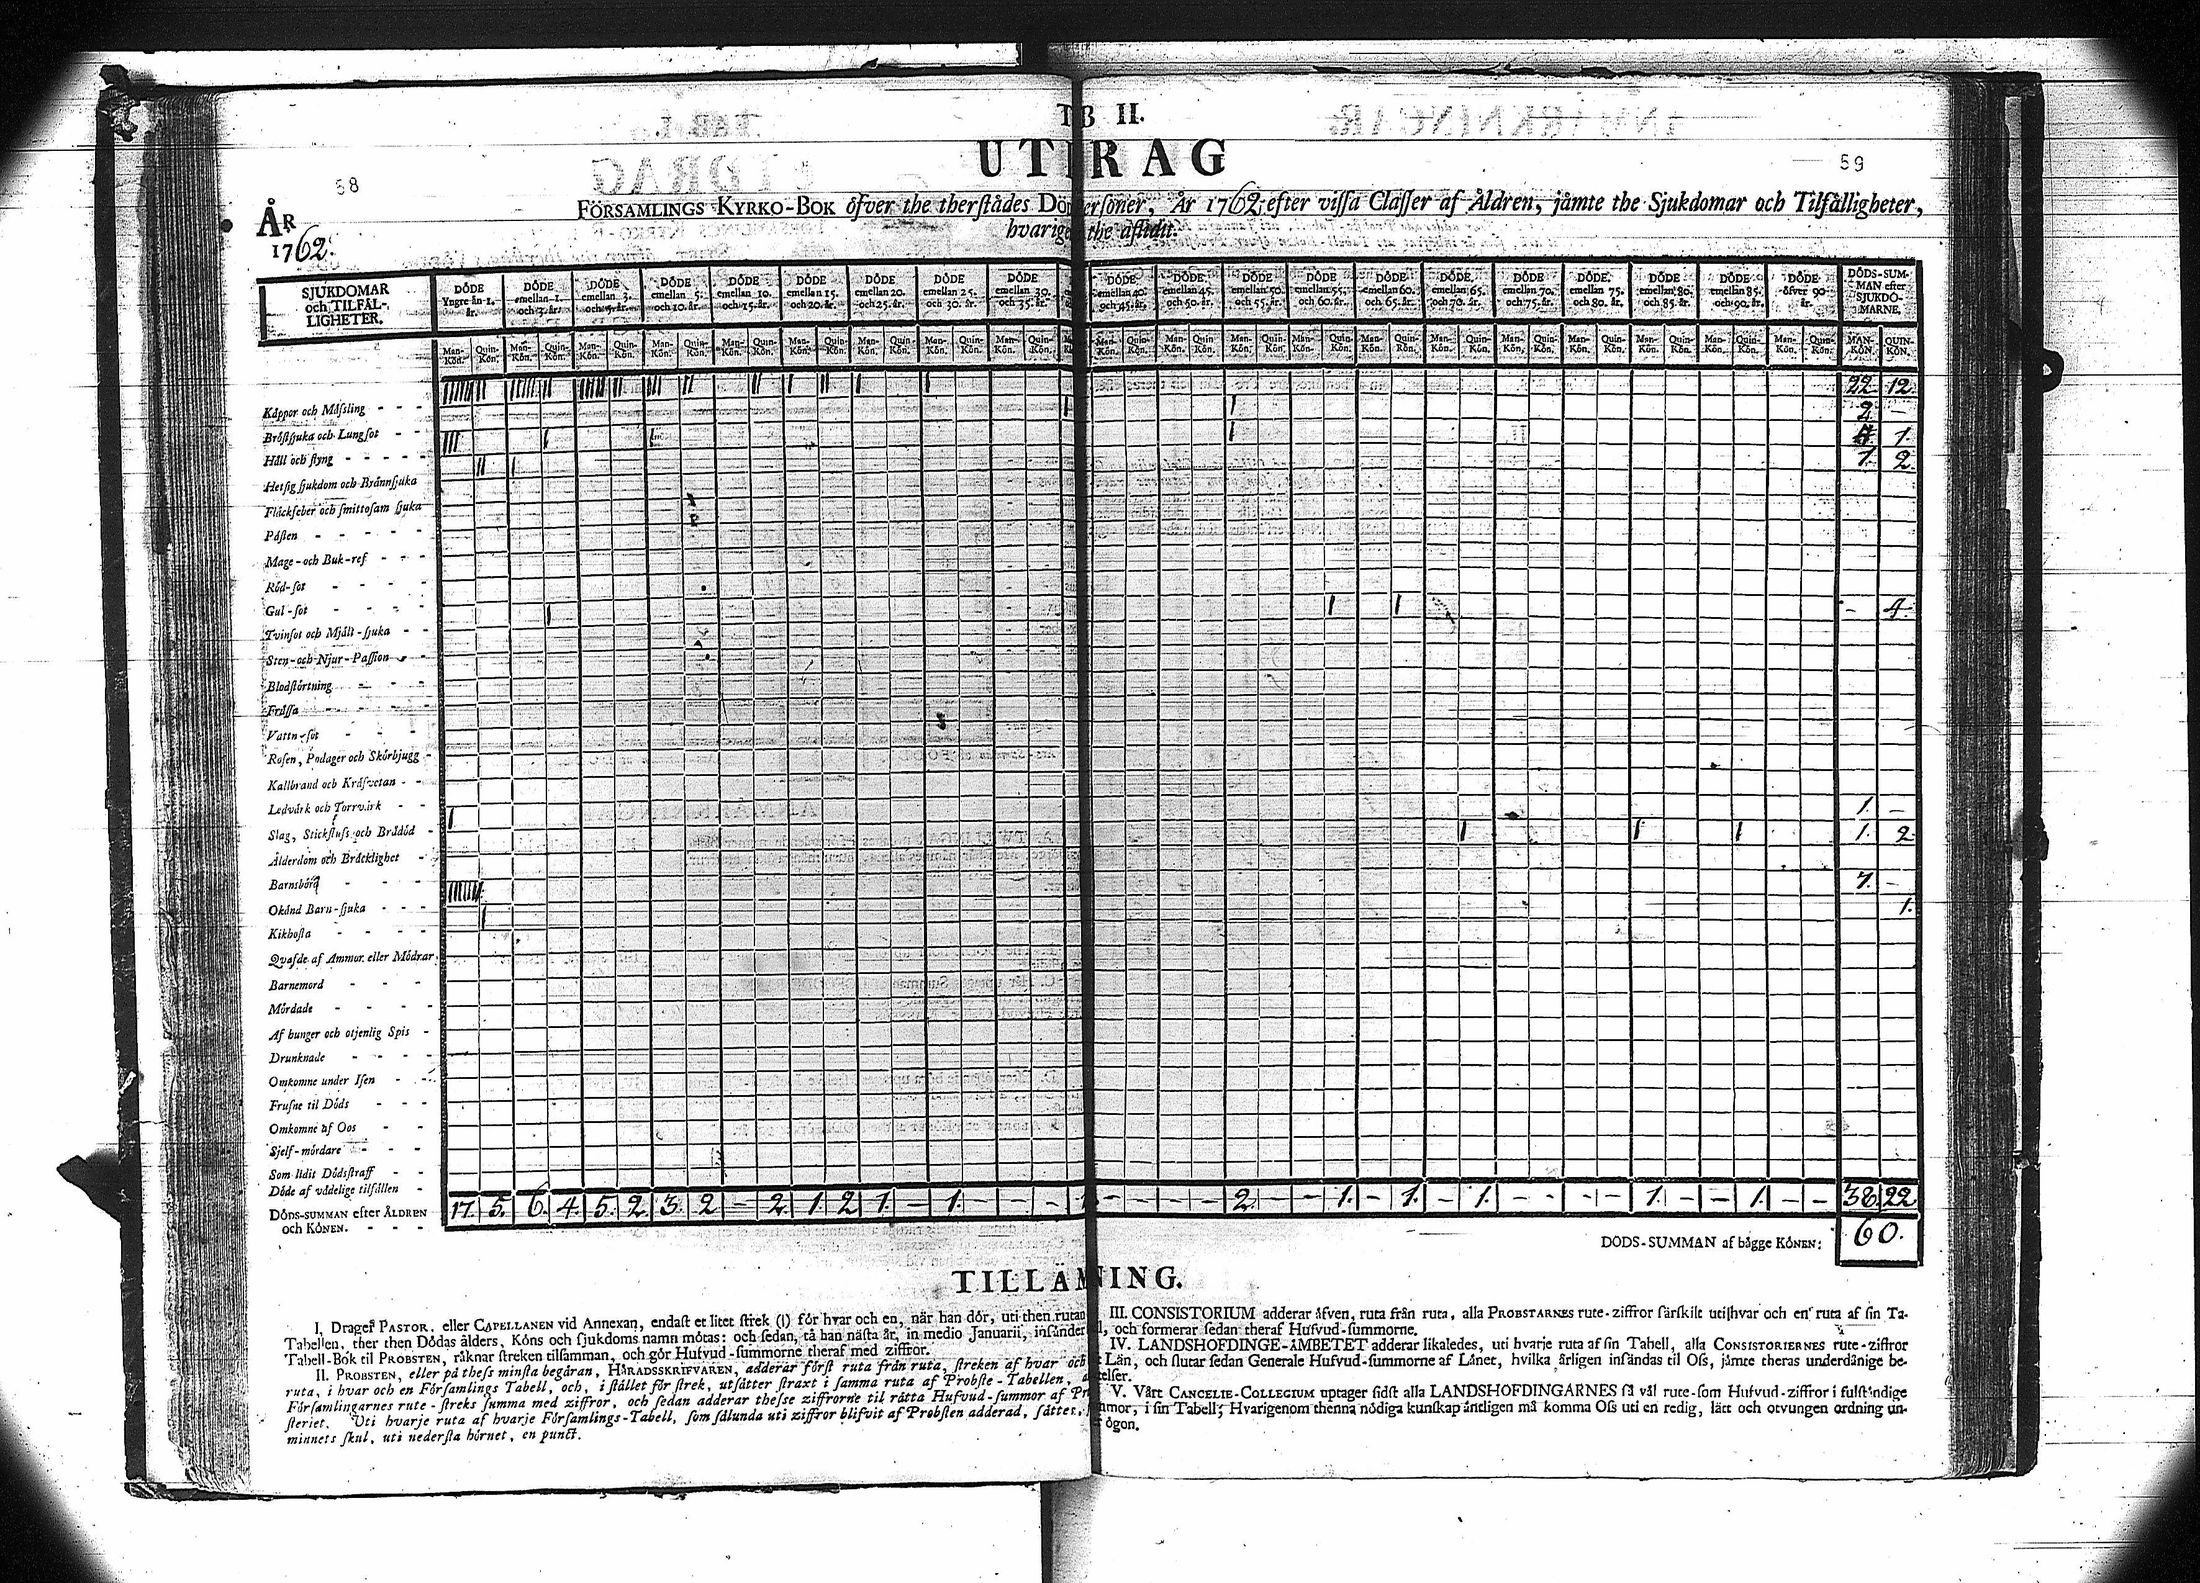 TAB II.
UTDRAG
58
59
ÅR
1762.
FÖRSAMLINGS KYRKO-BOK öfver the therstädes Döde Personer, År 1762 efter vissa Classer af Åldren, jämte the Sjukdomar och Tilfälligheter,
the aflidit.
SJUKDOMAR och TILFÄL-LIGHETER.
DÖDE Yngre än 1. år.
DÖDE emellan 1. och 3. år.
DÖDE emellan 3. och 5. år.
DÖDE emellan 5. och 10. år.
DÖDE emellan 10. och 15. år.
DÖDE emellan 15. och 20. år.
DÖDE emellan 20. och 25. år.
DÖDE emellan 25. och 30. år.
DÖDE emellan 30. och 35. år.
DÖDE emellan 40. och 45. år.
DÖDE emellan 45. och 50. år.
DÖDE emellan 50. och 55. år.
DÖDE emellan 55. och 60. år.
DÖDE emellan 60. och 65. år.
DÖDE emellan 65. och 70. år.
DÖDE emellan 70. och 75. år.
DÖDE emellan 75. och 80. år.
DÖDE emellan 80. och 85. år.
DÖDE emellan 85. och 90. år.
DÖDE öfver 90 år.
DÖDS-SUM-MAN efter SJUKDO-MARNE.
Man-Kön. Quin-Kön. Man-Kön. Quin-Kön. Man-Kön. Quin-Kön. Man-Kön. Quin-Kön. Man-Kön. Quin-Kön. Man-Kön. Quin-Kön. Man-Kön. Quin-Kön. Man-Kön. Quin-Kön. Man-Kön. Quin-Kön. Man-Kön. Quin-Kön. Man-Kön. Quin-Kön. Man-Kön. Quin-Kön. Man-Kön. Quin-Kön. Man-Kön. Quin-Kön. Man-Kön. Quin-Kön. Man-Kön. Quin-Kön. Man-Kön. Quin-Kön. Man-Kön. Quin-Kön. Man-Kön. Quin-Kön. Man-Kön. Quin-Kön. MAN-KÖN. QUIN-KÖN.
Kåppor och Måsling - - - 22 12
Bröstsjuka och Lungsot - - 2 -
Håll och styng - - - - - 1.
Hetsig sjukdom och Brännsjuka 1. 2
Fläckfeber och smittosam sjuka
Påsten - - - - -
Mage-och Buk-ref - - -
Röd-sot - - - -
Gul-sot - - - -
Tvinsot och Mjält-sjuka - - - 4.
Sten-och Njur-Passion - -
Blodstörtning - - -
Frässa - - - - -
Vattn-sot - - -
Rosen, Podager och Skörbjugg -
Kallbrand och Kräfvetan - -
Ledvärk och Torrvärk - -
Slag, Stickfluss och Brådöd - 1. -
Ålderdom och Bräcklighet - 1. 2
Barnsbörd - - - -
Okänd Barn-sjuka - - - 7. -
Kikhosta - - - - 1.
Qvafde af Ammor eller Mödrar
Barnemord - - -
Mördade - - - -
Af hunger och otjenlig Spis -
Drunknade - - - -
Omkomne under Isen - -
Frusne til Döds - - -
Omkomne af Oos - -
Sjelf-mördare - - -
Som lidit Dödsstraff - -
Döde af vådelige tilfällen -
DÖDS-SUMMAN efter ÅLDREN
och KÖNEN. - - -
17. 5. 6. 4. 5. 2. 3. 2 - 2. 1. 2 1. - 1. - - - 1. - - - - 2. - - 1. - 1. - 1. - - - - 1. - - 1. - - 38. 22.
DÖDS-SUMMAN af bägge KÖNEN: 60.
TILLÄMNING.
I. Drager PASTOR, eller CAPELLANEN vid Annexan, endast et litet strek (l) för hvar och en, när han dör, uti then rutan
Tabellen, ther then Dödas ålders, Köns och sjukdoms namn mötas: och sedan, tå han nästa år, in medio Januarii, insänder
Tabell-Bok til PROBSTEN, räknar streken tilsamman, och gör Hufvud-summorne theraf med ziffror.
II. PROBSTEN, eller på thess minsta begäran, HÄRADSSKRIFVAREN, adderar först ruta från ruta, streken af hvar och
ruta, i hvar och en Församlings Tabell, och, i stället för strek, utsätter straxt i samma ruta af Probste-Tabellen,
Församlingarnes rute-streks summa med ziffror, och sedan adderar thesse ziffrorne til rätta Hufvud-summor af
steriet. Uti hvarje ruta af hvarje Församlings-Tabell, som sålunda uti ziffror blifvit af Probsten adderad, sättes,
minnets skul, uti nedersta hörnet, en punct.
III. CONSISTORIUM adderar äfven, ruta från ruta, alla PROBSTARNES rute-ziffror särskilt uti hvar och en ruta af sin Ta-
och formerar sedan theraf Hufvud-summorne.
IV. LANDSHOFDINGE-ÄMBETET adderar likaledes, uti hvarje ruta af sin Tabell, alla CONSISTORIERNES rute-ziffror
Län, och slutar sedan Generale Hufvud-summorne af Länet, hvilka årligen insändas til Oss, jämte theras underdånige be-
V. Vårt CANCELIE-COLLEGIUM uptager sidst alla LANDSHOFDINGARNES så väl rute-som Hufvud-ziffror i fulständige
i sin Tabell; Hvarigenom thenna nödiga kunskap äntligen må komma Oss uti en redig, lätt och otvungen ordning un-
ögon.